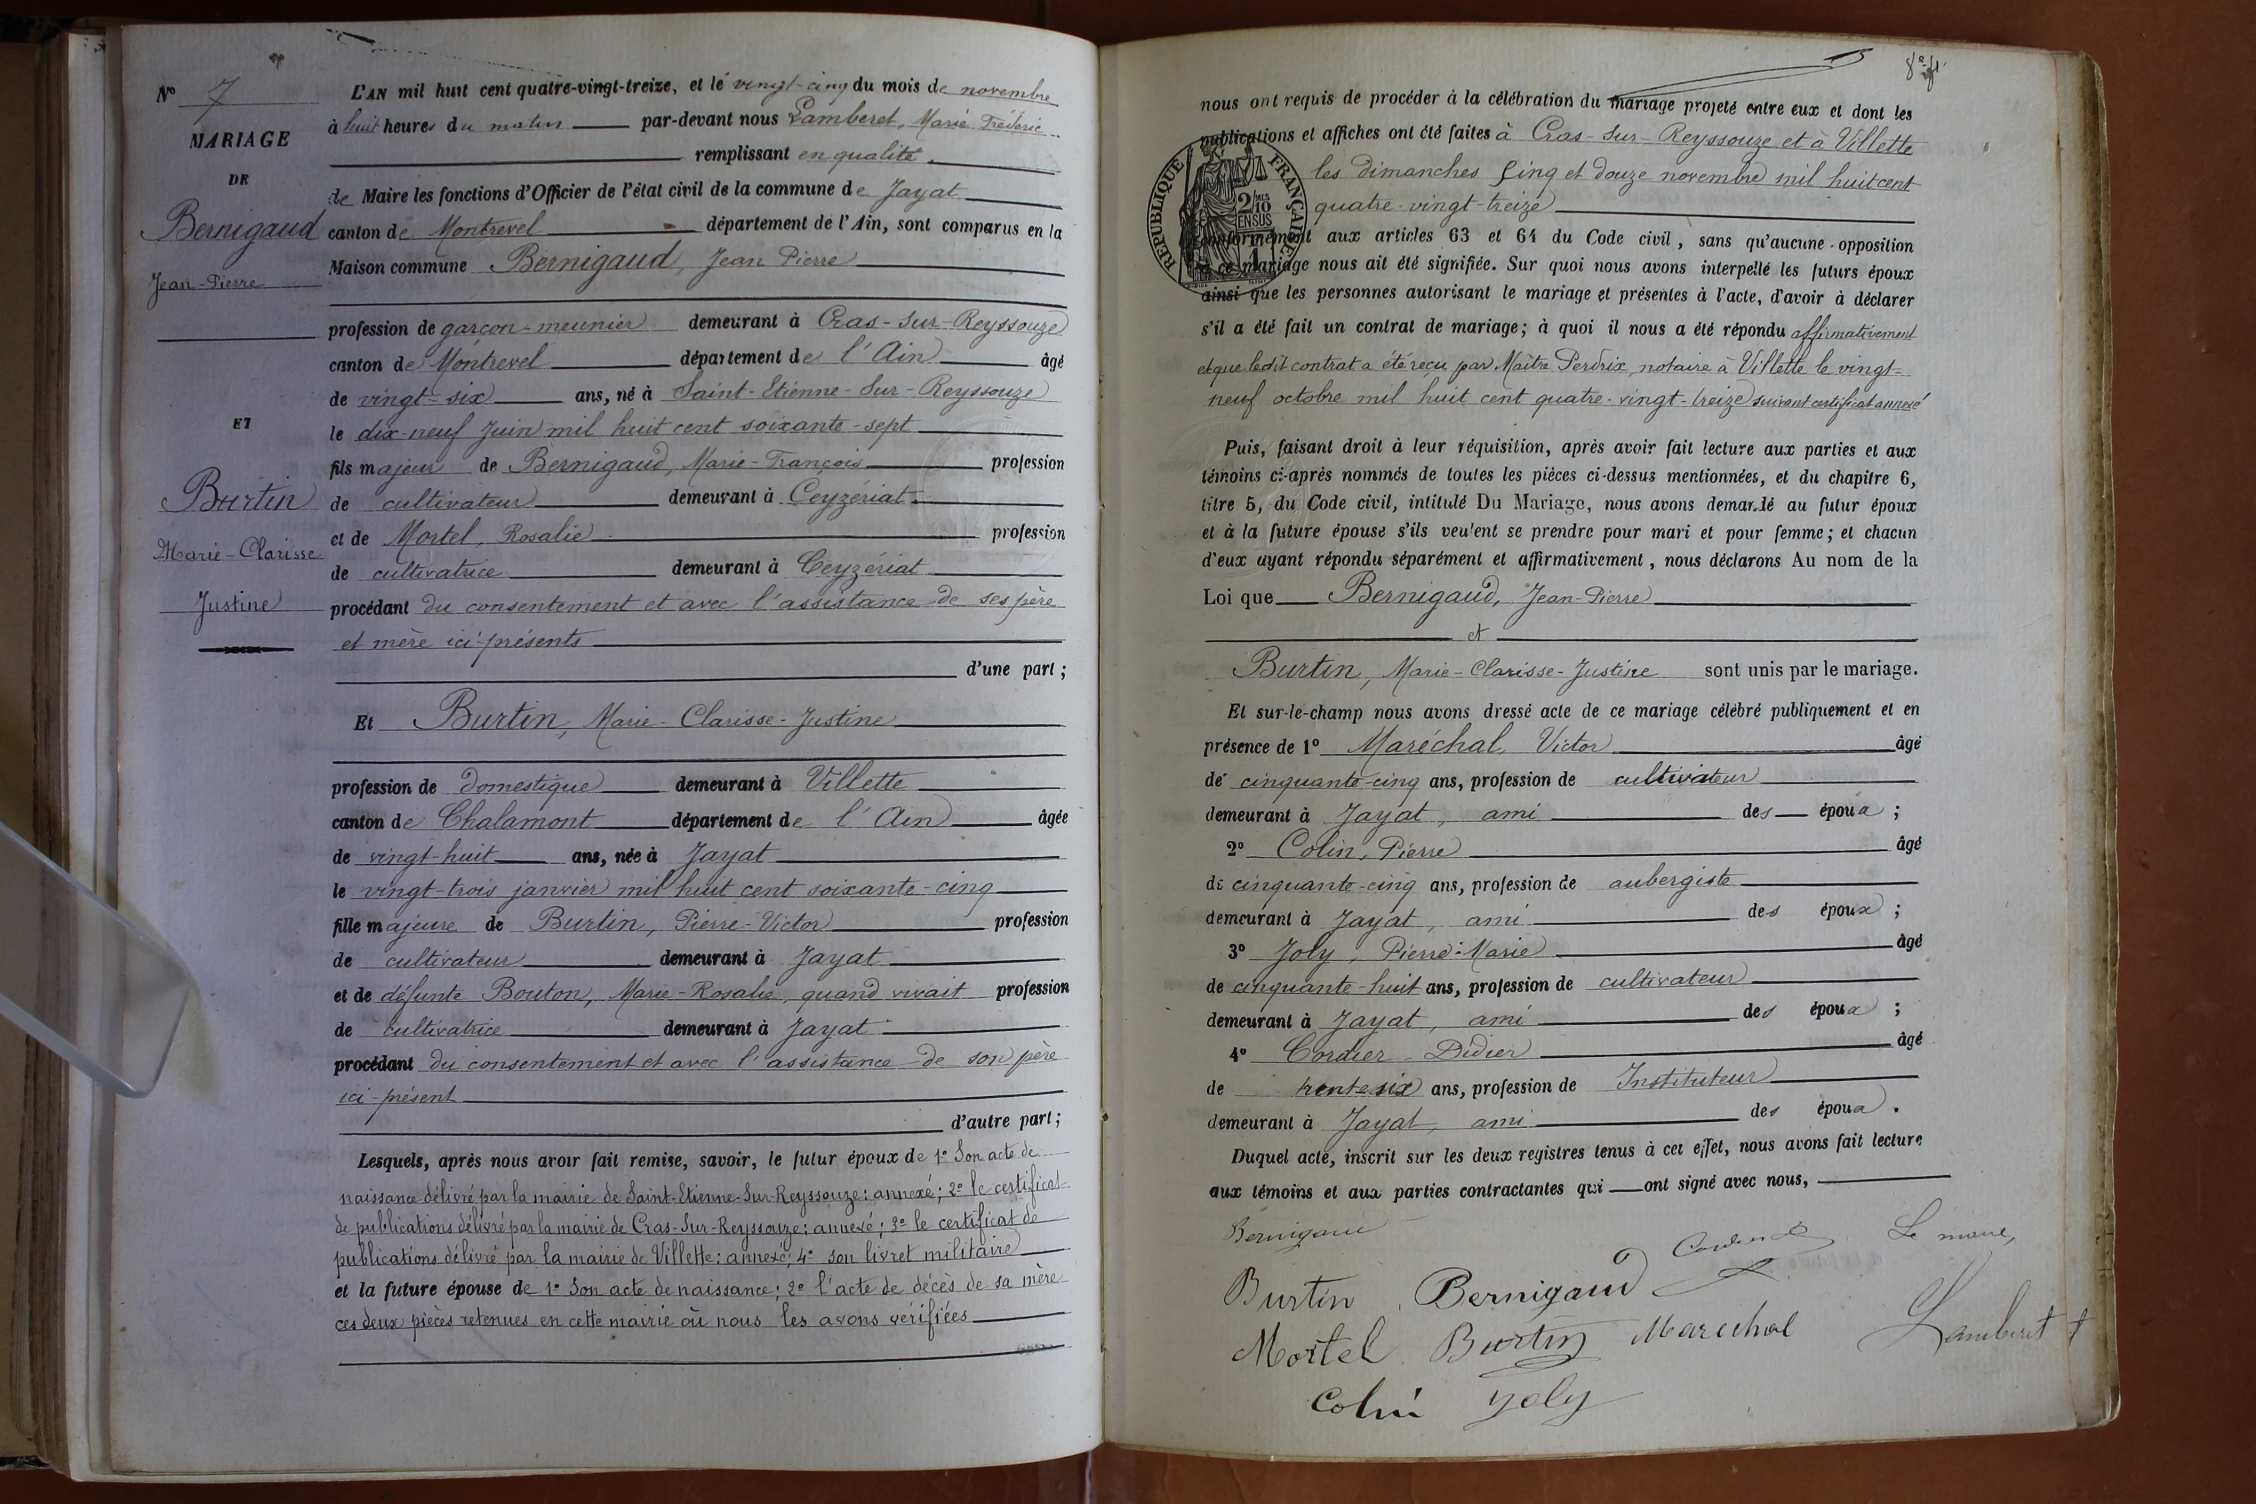 N° 7
MARIAGE
DE
Bernigaud
Jean-Pierre
ET
Burtin
Marie-Clarisse
Justine
L'AN mil huit cent quatre-vingt-treize, et le vingt-cinq du mois de novembre
à huit heures du matin par-devant nous Lamberet, Marie Fréderic
remplissant en qualité
de Maire les fonctions d'Officier de l'état civil de la commune de Jayat
canton de Montrevel département de l'Ain, sont comparus en la
Maison commune Bernigaud, Jean Pierre
profession de garçon-meunier demeurant à Cras-Sur-Reyssouze
canton de Montrevel département de l'Ain âgé
de vingt-six ans, né à Saint-Etienne-Sur-Reyssouze
le dix-neuf Juin mil huit cent soixante-sept
fils majeur de Bernigaud, Marie-François profession
de cultivateur demeurant à Ceyzériat
et de Mortel, Rosalie profession
de cultivatrice demeurant à Ceyzériat
procédant du consentement et avec l'assistance de ses père
et mère ici-présents
d'une part ;
Et Burtin, Marie-Clarisse-Justine
profession de domestique demeurant à Villette
canton de Chalamont département de l'Ain âgée
de vingt-huit ans, née à Jayat
le vingt-trois janvier mil huit cent soixante-cinq
fille majeure de Burtin, Pierre-Victor profession
de cultivateur demeurant à Jayat
et de défunte Bouton, Marie-Rosalie, quand vivait profession
de cultivatrice demeurant à Jayat
procédant du consentement et avec l'assistance de son père
ici-présent
d'autre part ;
Lesquels, après nous avoir fait remise, savoir, le futur époux de 1° Son acte de
naissance délivré par la mairie de Saint-Etienne-Sur-Reyssouze: annexé; 2° le certificat
de publications délivré par la mairie de Cras-Sur-Reyssouze: annexé; 3° le certificat de
publications délivré par la mairie de Villette: annexé; 4° son livret militaire
et la future épouse de 1° Son acte de naissance; 2° l'acte de décès de sa mère
ces deux pièces retenues en cette mairie où nous les avons vérifiées
nous ont requis de procéder à la célébration du mariage projeté entre eux et dont les
publications et affiches ont été faites à Cras-Sur-Reyssouze et à Villette
les dimanches cinq et douze novembre mil huit cent
quatre-vingt-treize
conformément aux articles 63 et 64 du Code civil, sans qu'aucune opposition
à ce mariage nous ait été signifiée. Sur quoi nous avons interpellé les futurs époux
ainsi que les personnes autorisant le mariage et présentes à l'acte, d'avoir à déclarer
s'il a été fait un contrat de mariage; à quoi il nous a été répondu affirmativement
et que ledit contrat a été reçu par Maître Perdrix, notaire à Villette le vingt-
neuf octobre mil huit cent quatre-vingt-treize suivant certificat annexé
RÉPUBLIQUE FRANÇAISE
2/10 EN SUS
Puis, faisant droit à leur réquisition, après avoir fait lecture aux parties et aux
témoins ci-après nommés de toutes les pièces ci-dessus mentionnées, et du chapitre 6,
titre 5, du Code civil, intitulé Du Mariage, nous avons demandé au futur époux
et à la future épouse s'ils veulent se prendre pour mari et pour femme; et chacun
d'eux ayant répondu séparément et affirmativement, nous déclarons Au nom de la
Loi que Bernigaud, Jean-Pierre
et
Burtin, Marie-Clarisse-Justine sont unis par le mariage.
Et sur-le-champ nous avons dressé acte de ce mariage célébré publiquement et en
présence de 1° Maréchal, Victor âgé
de cinquante-cinq ans, profession de cultivateur
demeurant à Jayat, ami des époux ;
2° Colin, Pierre âgé
de cinquante-cinq ans, profession de aubergiste
demeurant à Jayat, ami des époux ;
3° Joly, Pierre-Marie âgé
de cinquante-huit ans, profession de cultivateur
demeurant à Jayat, ami des époux ;
4° Cordier Didier âgé
de trente six ans, profession de Instituteur
demeurant à Jayat, ami des époux .
Duquel acte, inscrit sur les deux registres tenus à cet effet, nous avons fait lecture
aux témoins et aux parties contractantes qui ont signé avec nous,
Bernigaud
Le maire,
Burtin Bernigaud
Mortel Burtin Marechal Lamberet
Colin Joly